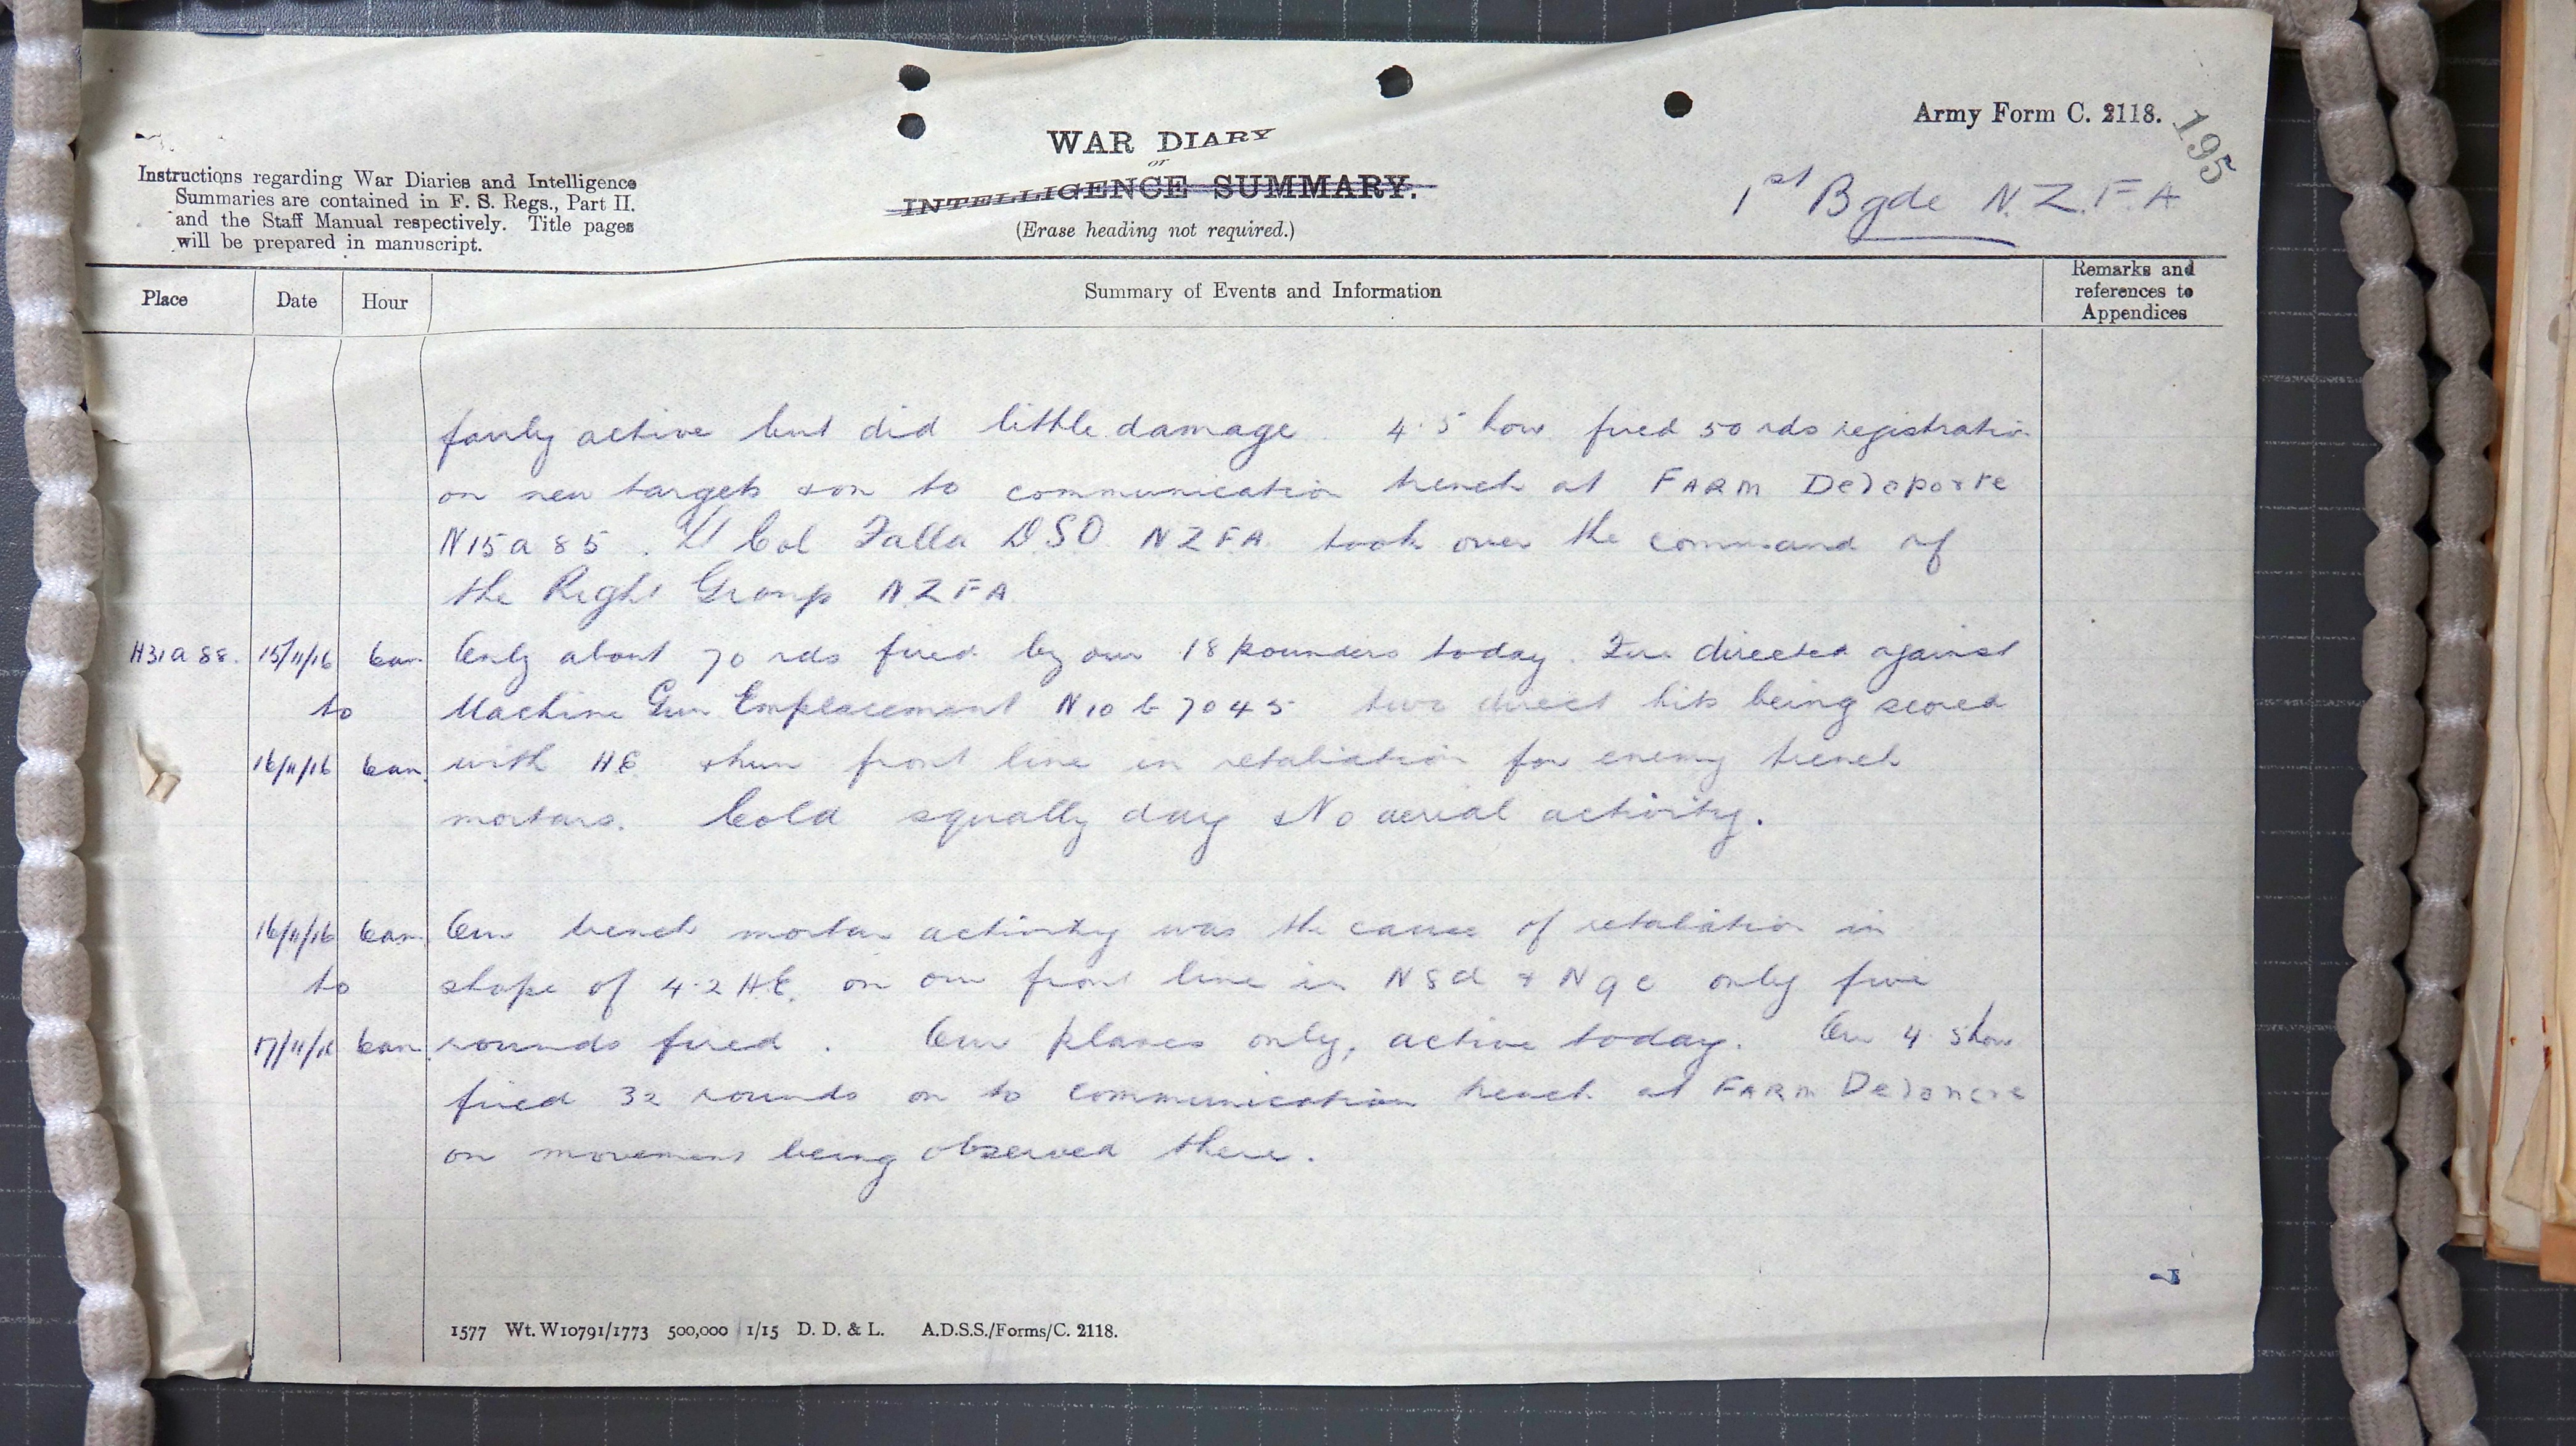 Army Form C. 2118.
195
WAR DIARY
or
INTELLIGENCE SUMMARY.
(Erase heading not required.)
Instructions regarding War Diaries and Intelligence
Summaries are contained in F. S. Regs., Part II.
and the Staff Manual respectively. Title pages
will be prepared in manuscript.
1st Bgde N.Z.F.A
Place Date Hour Summary of Events and Information Remarks and references to Appendices
fairly active but did little damage 4.5 how fired 50 rds registration
on new targets & on to communication trench at FARM Delaporte
N15a85. Lt Col Falla DSO NZFA took over the command of
the Right Group NZFA
H31a88. 15/11/16 6am Only about 70 rds fired by our 18 pounders today. Fire directed against
to Machine Gun Emplacement N10b7045 two direct hits being scored
16/11/16 6am with HE & hun front line in retaliation for enemy trench
mortars. Cold squally day No aerial activity.
16/11/16 6am Our trench mortar activity was the cause of retaliation in
to shape of 4.2 HE. on our front line in N8d & N9c only five
17/11/16 6am rounds fired. Our planes only, active today. Our 4.5 how
fired 32 rounds on to communication trench at FARM Delancre
on movement being observed there.
1577 Wt. W10791/1773 500,000 1/15 D. D. & L. A.D.S.S./Forms/C. 2118.